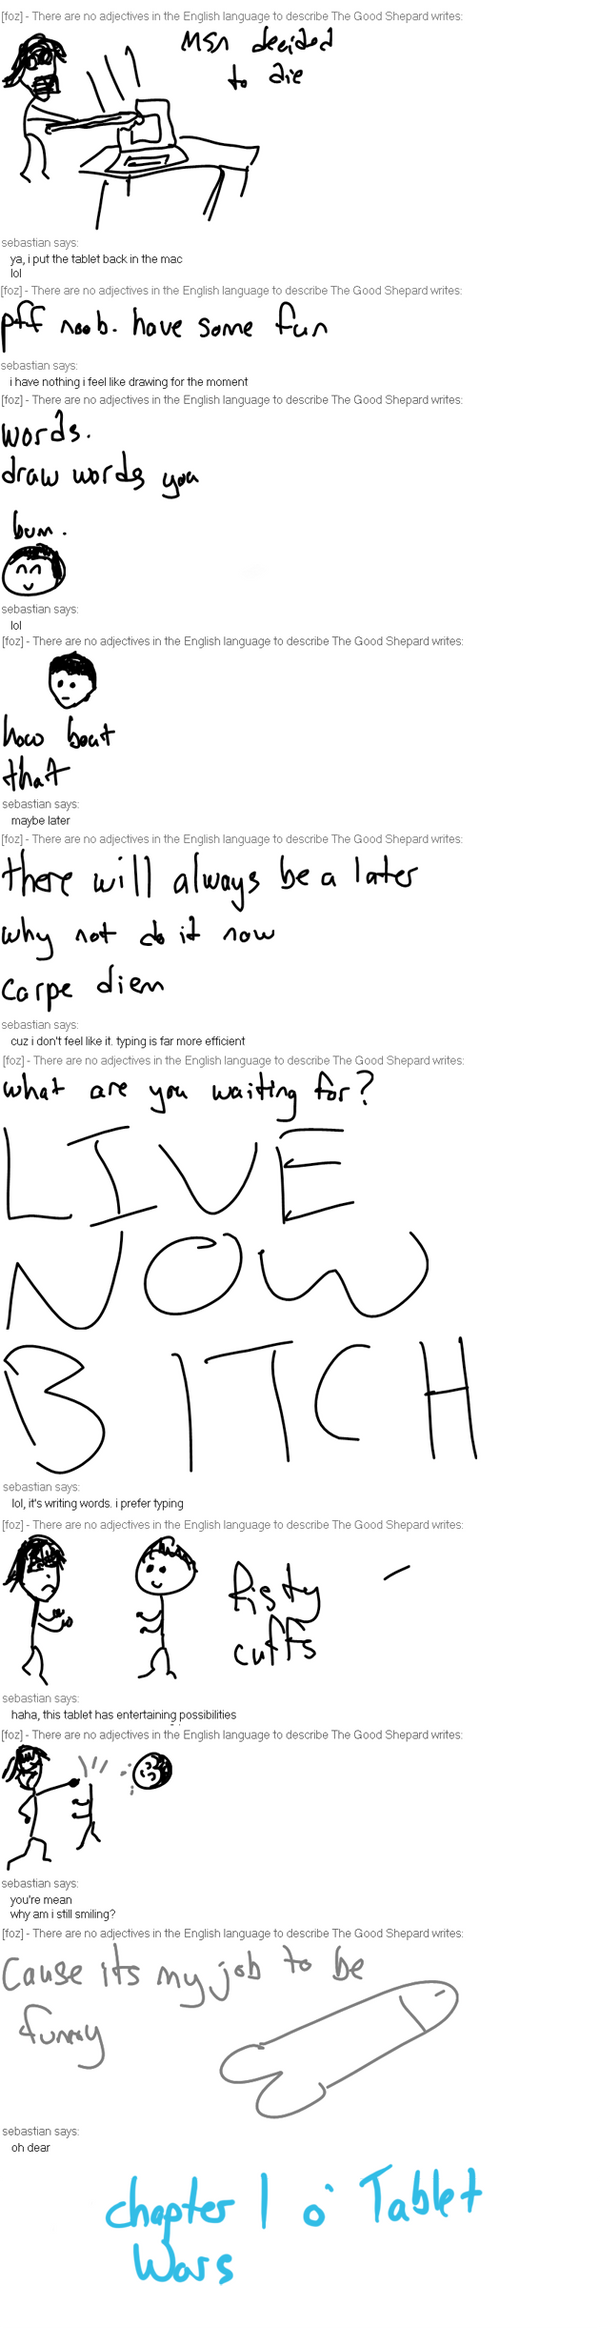 [foz] - There are no adjectives in the English language to describe The Good Shepard writes:
msn decided
to die
sebastian says:
ya, i put the tablet back in the mac
lol
[foz] - There are no adjectives in the English language to describe The Good Shepard writes:
pff noob. have some fun
sebastian says:
i have nothing i feel like drawing for the moment
[foz] - There are no adjectives in the English language to describe The Good Shepard writes:
words.
draw words you
bum.
sebastian says:
lol
[foz] - There are no adjectives in the English language to describe The Good Shepard writes:
how bout
that
sebastian says:
maybe later
[foz] - There are no adjectives in the English language to describe The Good Shepard writes:
there will always be a later
why not do it now
carpe diem
sebastian says:
cuz i don't feel like it. typing is far more efficient
[foz] - There are no adjectives in the English language to describe The Good Shepard writes:
what are you waiting for?
LIVE
NOW
BITCH
sebastian says:
lol, it's writing words. i prefer typing
[foz] - There are no adjectives in the English language to describe The Good Shepard writes:
fisty
cuffs
sebastian says:
haha, this tablet has entertaining possibilities
[foz] - There are no adjectives in the English language to describe The Good Shepard writes:
sebastian says:
you're mean
why am i still smiling?
[foz] - There are no adjectives in the English language to describe The Good Shepard writes:
Cause its my job to be
funny
sebastian says:
oh dear
chapter 1 o' Tablet
Wars